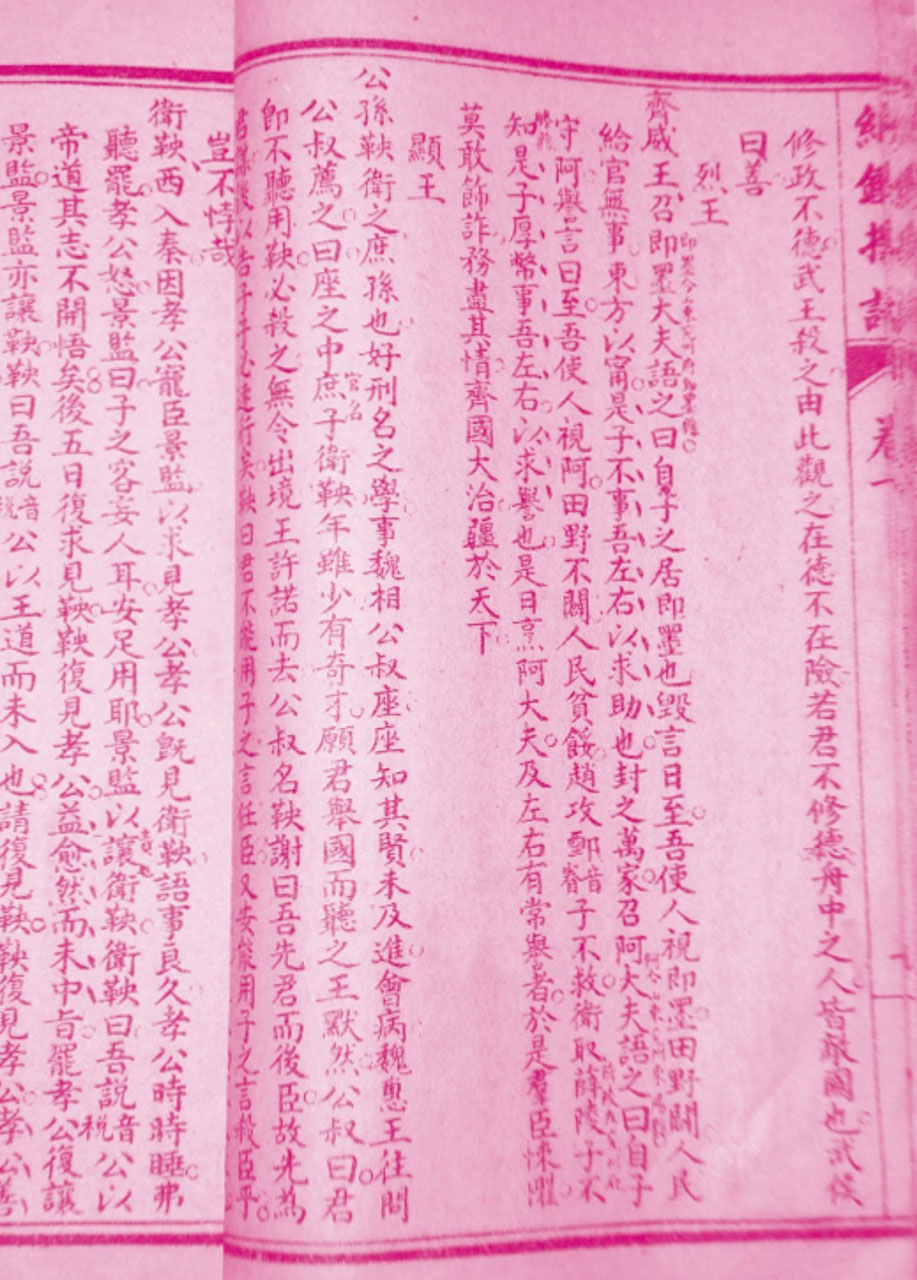 綱鑑擇語 卷一
修政不德武王殺之由此觀之在德不在險若君不修德舟中之人皆敵國也武侯
曰善
烈王
齊威王召即墨大夫語之曰自子之居即墨也毀言日至吾使人視即墨田野闢人民
給官無事東方以甯是子不事吾左右以求助也封之萬家召阿大夫語之曰自子
守阿譽言日至吾使人視阿田野不闢人民貧餒趙攻鄄音子不救衛取薛陵子不
知是子厚幣事吾左右以求譽也是日烹阿大夫及左右有常譽者於是羣臣悚懼
莫敢飾詐務盡其情齊國大治疆於天下
顯王
公孫鞅衛之庶孫也好刑名之學事魏相公叔座座知其賢未及進會病魏惠王往問
公叔薦之曰座之中庶官名子衛鞅年雖少有奇才願君舉國而聽之王默然公叔曰君
即不聽用鞅必殺之無令出境王許諾而去公叔名鞅謝曰吾先君而後臣故先為
君謀後以告子子必速行矣鞅曰君不能用子之言任臣又安能用子之言殺臣乎
豈不悖哉
衛鞅西入秦因孝公寵臣景監以求見孝公孝公既見衛鞅語事良久孝公時時睡弗
聽罷孝公怒景監曰子之客妄人耳安足用耶景監以讓衛鞅衛鞅曰吾説音税公以
帝道其志不開悟矣後五日復求見鞅鞅復見孝公益愈然而未中旨罷孝公復讓
景監景監亦讓鞅鞅曰吾説音税公以王道而未入也請復見鞅鞅復見孝公孝公善